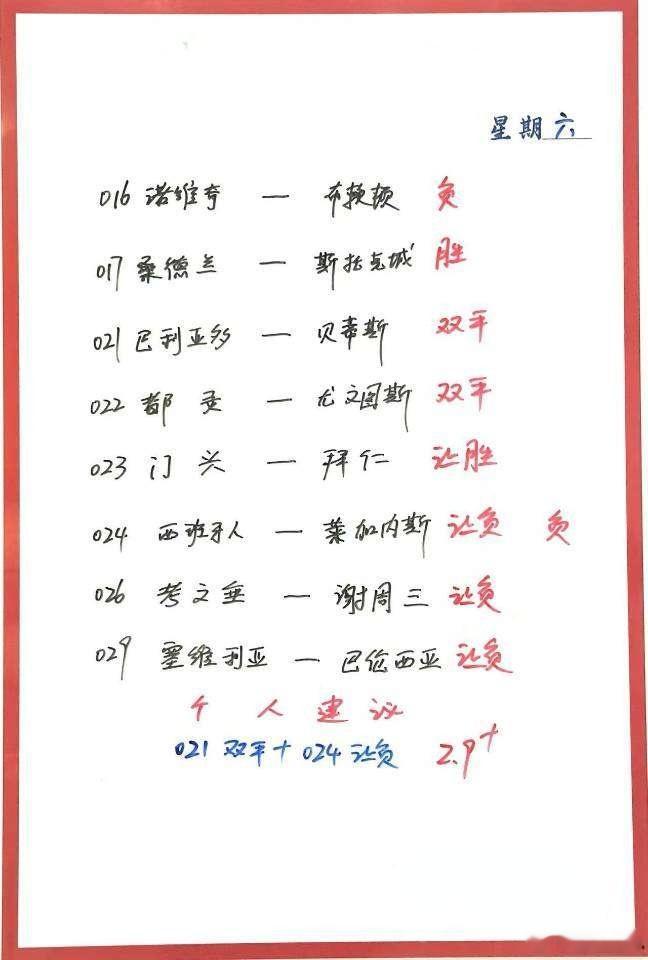 星期六
016 诺维奇 — 布赖顿 负
017 桑德兰 — 斯托克城 胜
021 巴利亚多 — 贝蒂斯 双平
022 都灵 — 尤文图斯 双平
023 门兴 — 拜仁 让胜
024 西班牙人 — 莱加内斯 让负 负
026 考文垂 — 谢周三 让负
029 塞维利亚 — 巴伦西亚 让负
个人建议
021 双平+024 让负 2.9+